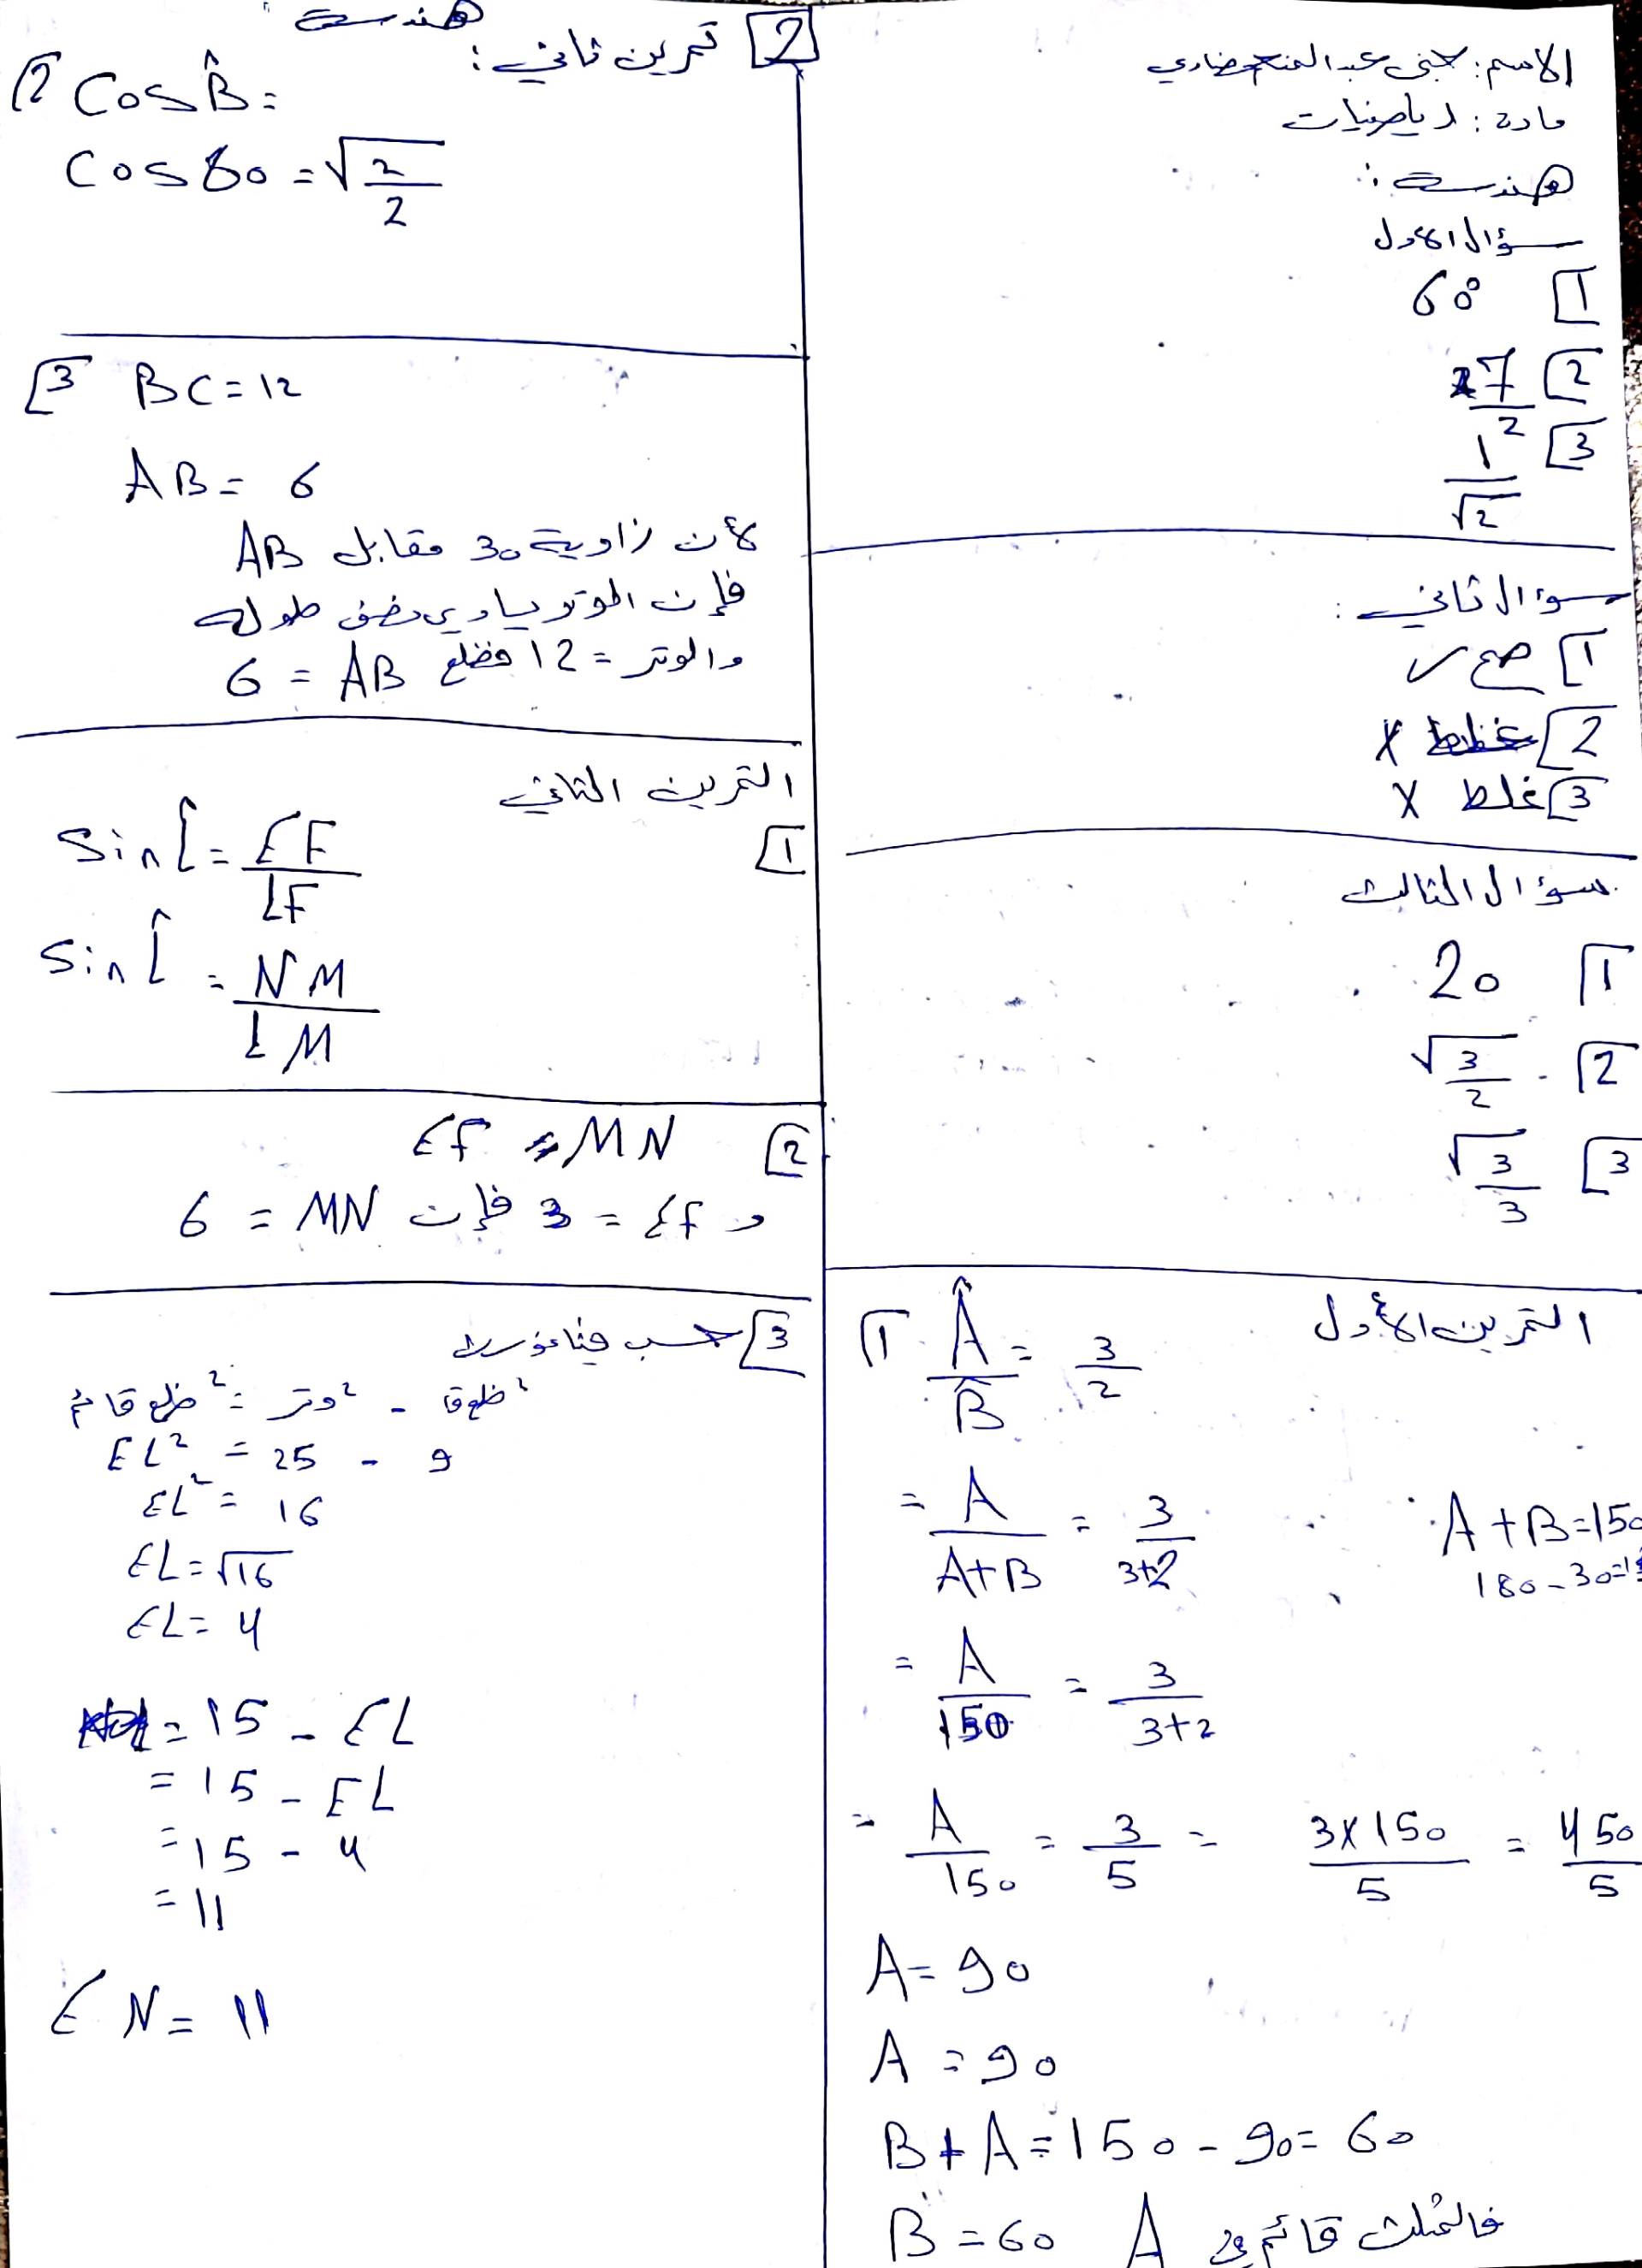 الاسم: عبد
مادة: رياضيات
هندسة:
سؤال الأول
1 60°
2 7/2
3 1/√2
سؤال ثاني:
1 صح ✓
2 غلط X
3 غلط X
سؤال الثالث
1 20
2 √3/2
3 √3/3
التمرين الأول
1 Â/B̂ = 3/2
= A/A+B = 3/3+2 A+B=150
180-30=1
= A/150 = 3/3+2
= A/150 = 3/5 = 3x150/5 = 450/5
A=90
A=90
B+A=150-90=60
B=60 فالمثلث قائم في A
هندسة
2 تمرين ثاني:
2 Cos B̂=
Cos 60=√2/2
3 BC=12
AB=6
لأن زاوية 30 مقابل AB
فإن الوتر يساوي نصف طوله
والوتر = 12 فضلع AB = 6
التمرين الثاني
1
Sin L̂ = EF/LF
Sin L̂ = NM/LM
2 EF = MN
و EF = 3 فإن MN = 6
3 حسب فيثاغورث
ضلع قائم² = وتر² - ضلع ق²
EL² = 25 - 9
EL² = 16
EL=√16
EL=4
= 15 - EL
= 15 - EL
= 15 - 4
= 11
EN = 11